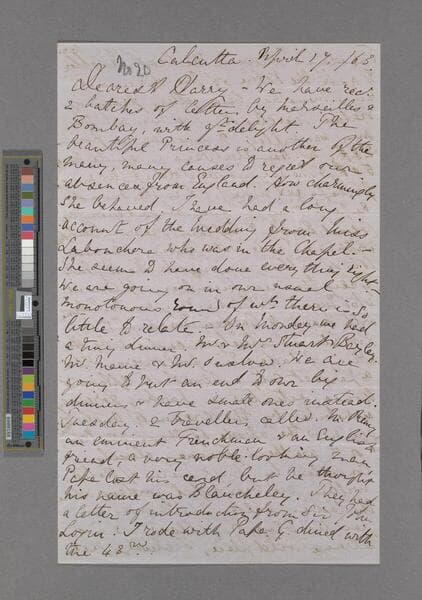 No 20
Calcutta. April 17. /63.
Dearest Darry - We have recd
2 batches of letters by Marseilles &
Bombay, with gt delight. The
beautiful Princess is another of the
many, many causes to regret our
absences from England. How charmingly
she behaved. I have had a long
account of the wedding from Miss
Labouchere who was in the Chapel. -
She seems to have done everything right -
We are going on in our usual
monotonous round of wh there is so
little to relate. - On Monday we had
a tiny dinner. Mr & Mrs Stuart Bayley
Mr Maine & Mr Onslow. We are
going to put an end to our big
dinners & have small ones instead.
Tuesday. 2 Travellers called. M.
an eminent Frenchman & an English
friend, a very noble-looking man.
Papa lost his card, but he thought
his name was Blancheley. They had
a letter of introduction from Sir Jhn
Login. I rode with Papa. G. dined with
the 48th.